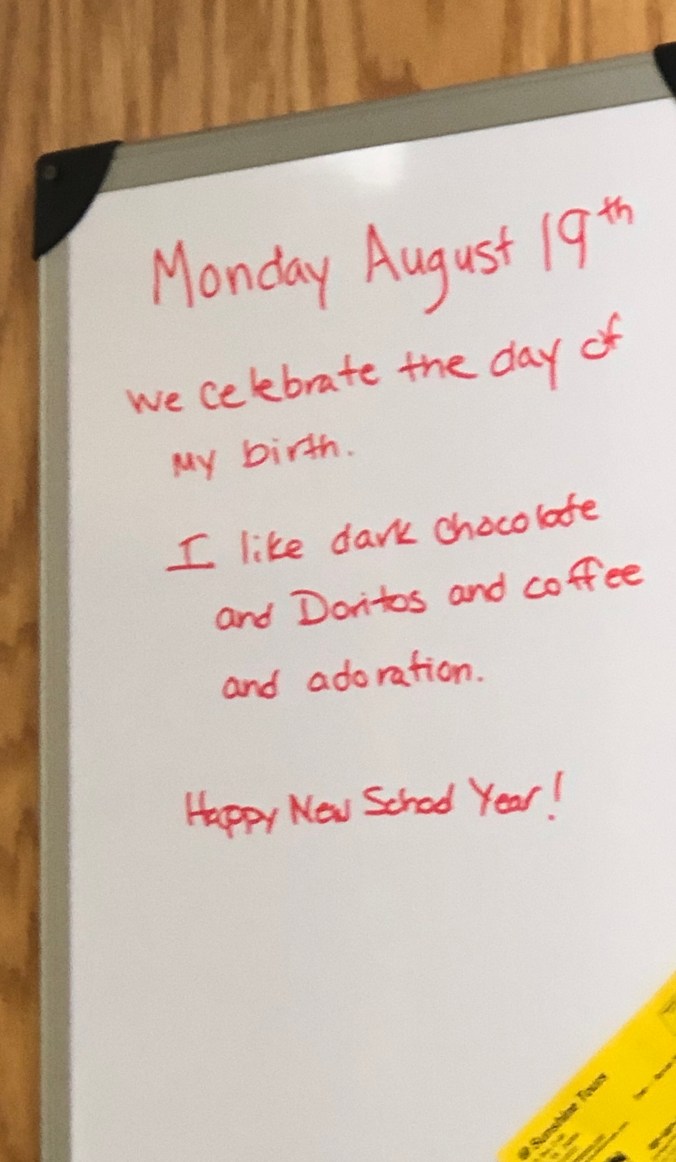 Monday August 19th
We celebrate the day of
My birth.
I like dark chocolate
and Doritos and coffee
and adoration.
Happy New School Year!